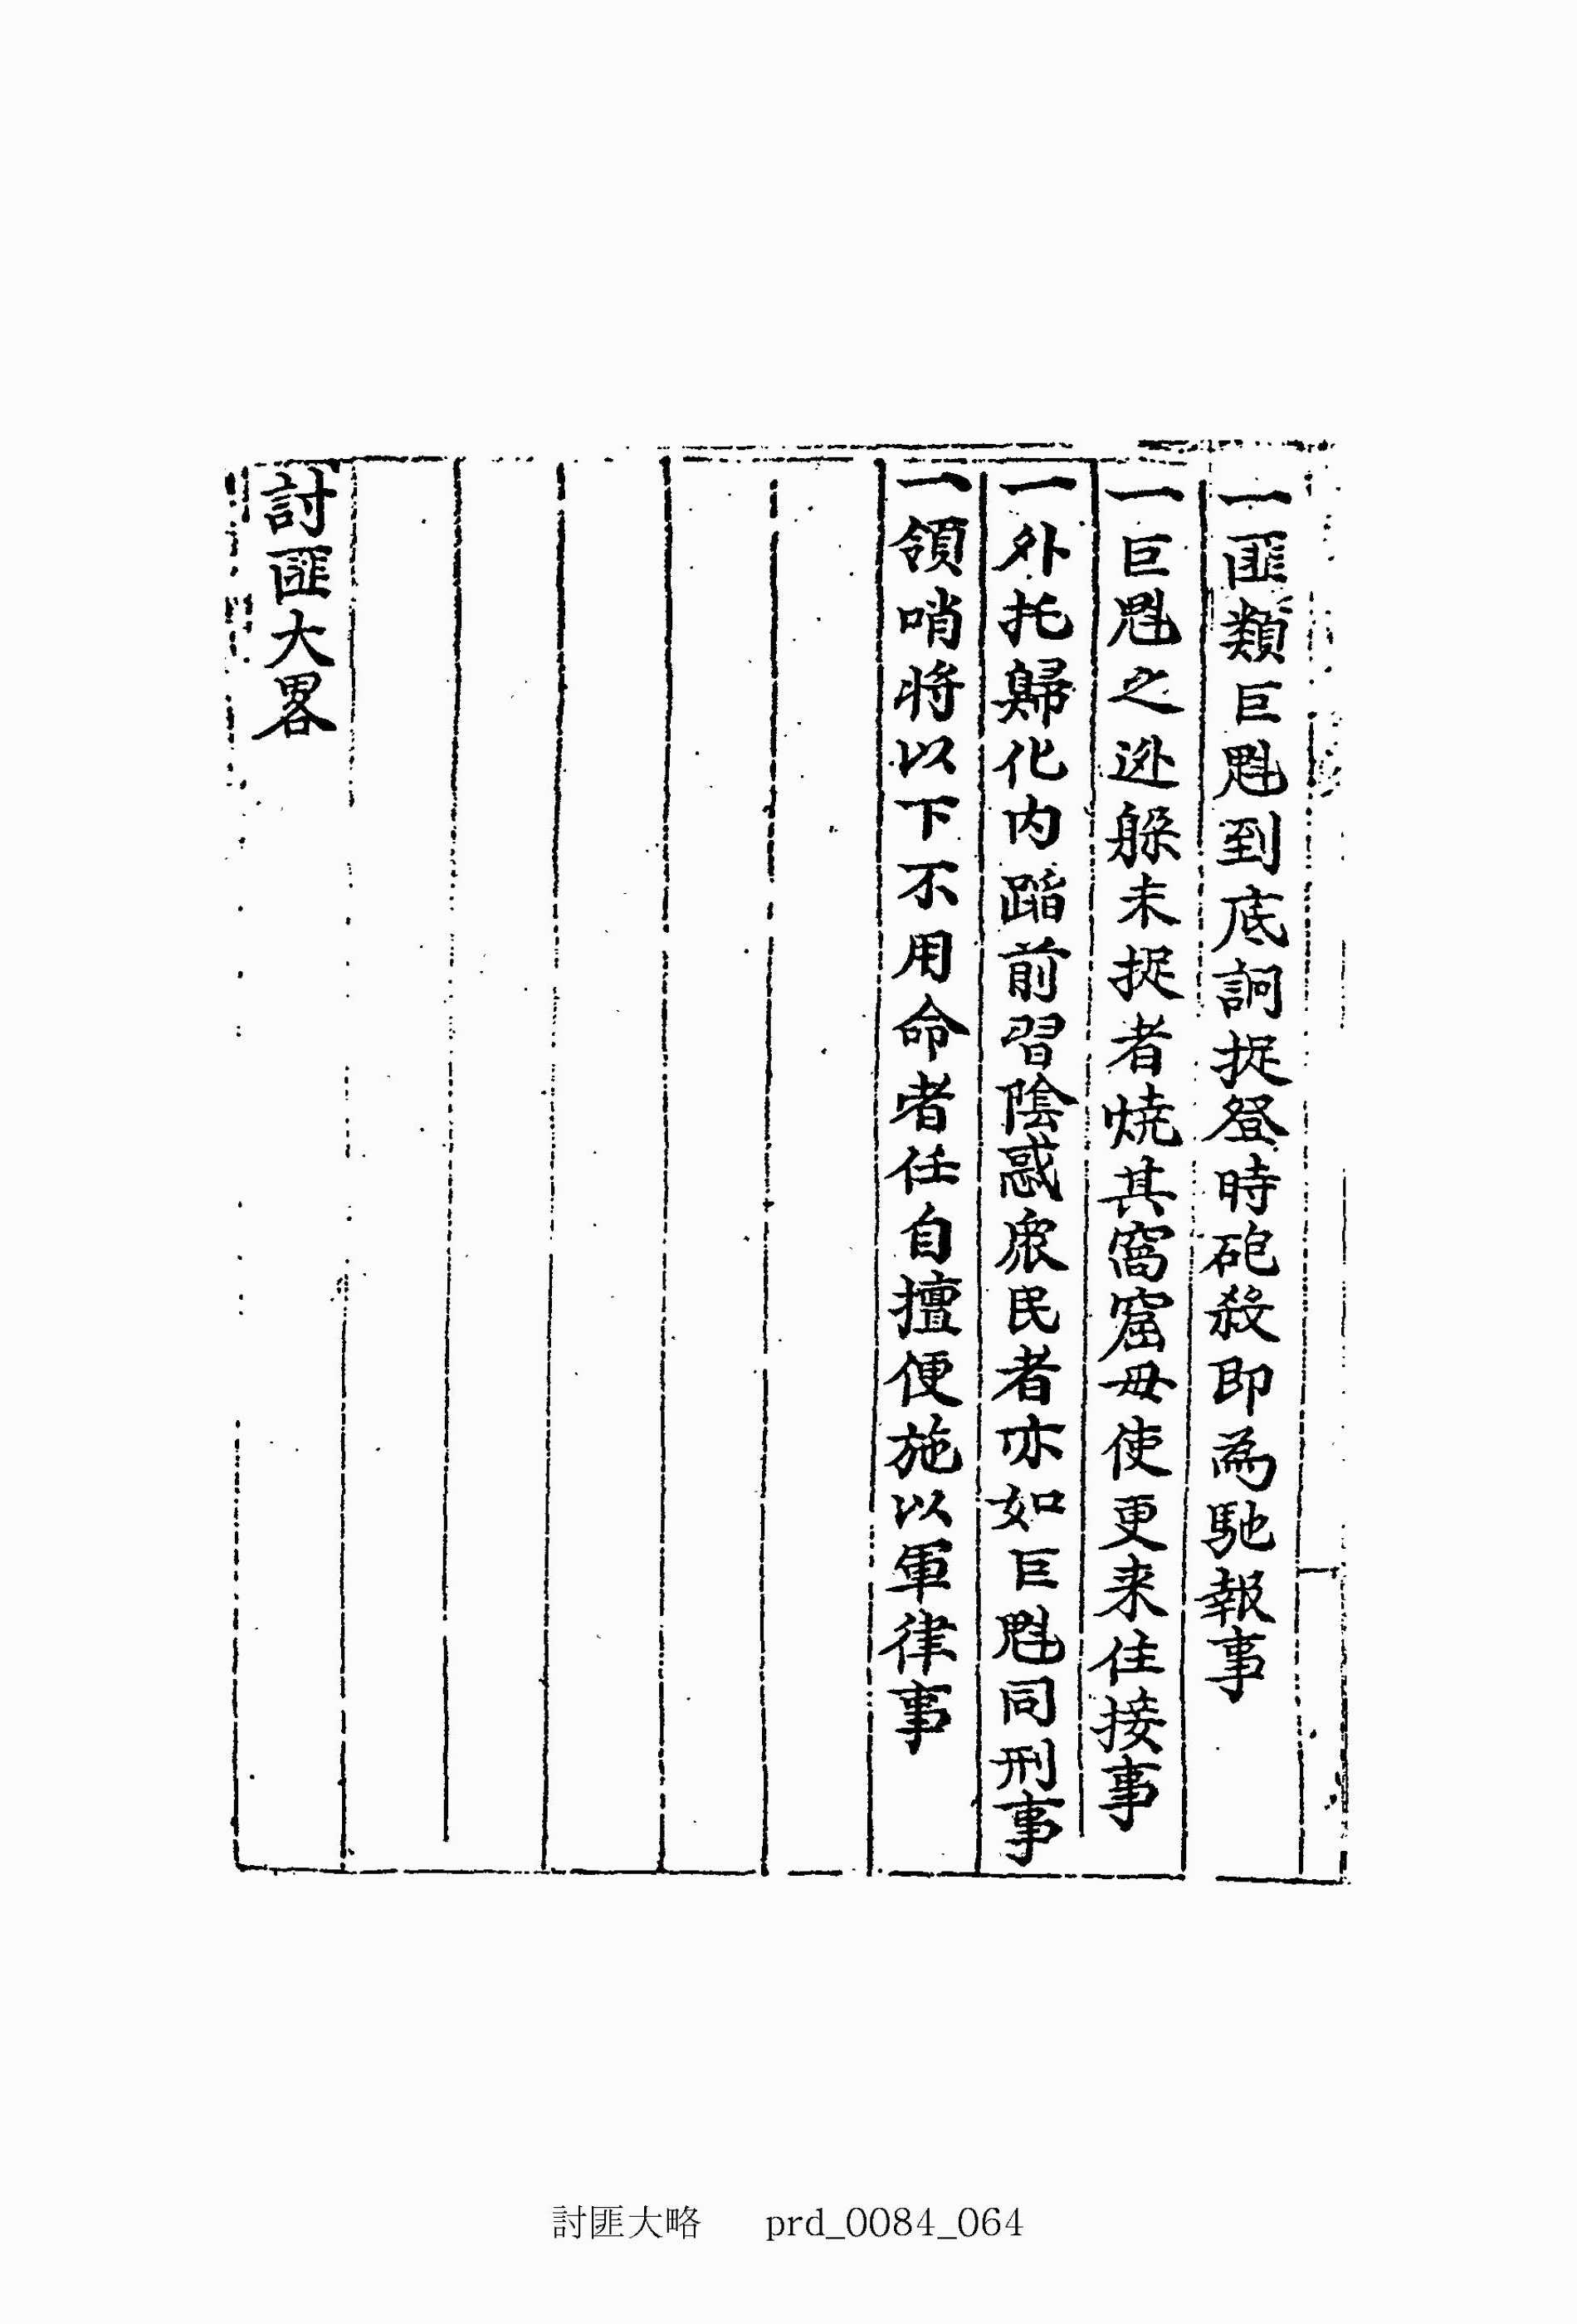 一匪類巨魁到底詗捉登時砲殺即為馳報事
一巨魁之逃躱未捉者燒其窩窟毋使更来住接事
一外托歸化内蹈前習陰惑衆民者亦如巨魁同刑事
一領哨将以下不用命者任自擅便施以軍律事
討匪大畧
討匪大略 prd_0084_064